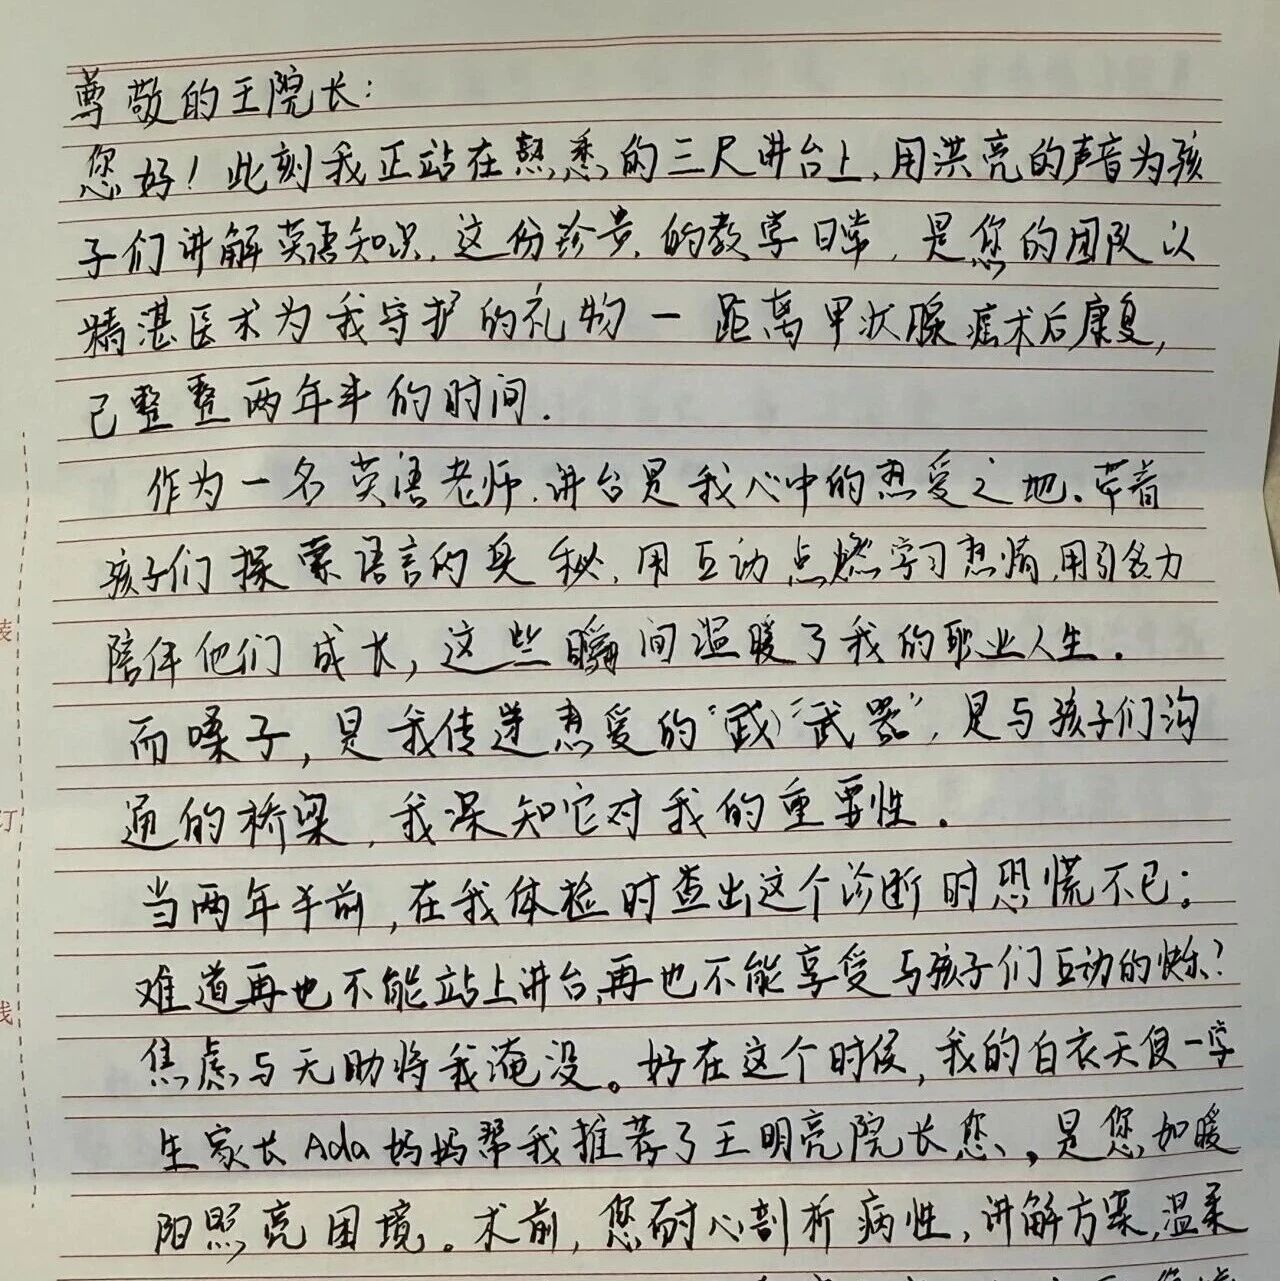 尊敬的王院长:
您好！此刻我正站在熟悉的三尺讲台上,用洪亮的声音为孩
子们讲解英语知识.这份珍贵,的教学日常,是您的团队以
精湛医术为我守护的礼物一距离甲状腺癌术后康复,
已整整两年半的时间.
作为一名英语老师.讲台是我心中的热爱之地.带着
孩子们探索语言的奥秘.用互动点燃学习热情,用引努力
陪伴他们成长,这些瞬间温暖了我的职业人生.
而嗓子,是我传递热爱的“武器”,是与孩子们沟
通的桥梁,我深知它对我的重要性.
当两年半前,在我体检时查出这个诊断时恐慌不已:
难道再也不能站上讲台,再也不能享受与孩子们互动的快乐?
焦虑与无助将我淹没。好在这个时候,我的白衣天使一学
生家长Ada妈妈帮我推荐了王明亮院长您、是您如暖
阳照亮困境。术前,您耐心剖析病性,讲解方案,温柔
装
订
线